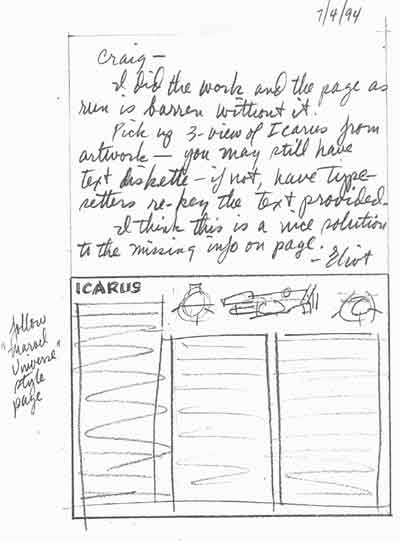 7/4/94
Craig—
I did the work and the page as
run is barren without it.
Pick up 3-view of Icarus from
artwork — you may still have
text diskette — if not, have type-
setters re-key the text provided.
I think this is a nice solution
to the missing info on page.
— Eliot
ICARUS
follow
"Marvel
Universe"
style
page